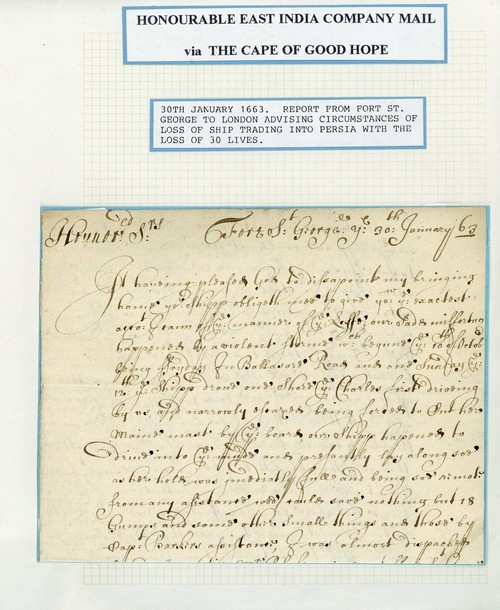 HONOURABLE EAST INDIA COMPANY MAIL
via THE CAPE OF GOOD HOPE
30TH JANUARY 1663. REPORT FROM FORT ST.
GEORGE TO LONDON ADVISING CIRCUMSTANCES OF
LOSS OF SHIP TRADING INTO PERSIA WITH THE
LOSS OF 30 LIVES.
Honnor:ed S:rs Fort S:t George y:e 30:th January 63
It haveing pleased God to disapoint my bringing
home yo:r shipp obligeth mee to give yo:w y:e exactest
acco:t I cann of y:e manner of y:e Losse; our sade misfortune
happened by a violent storme w:ch begune y:e 10:th of Octob
being Monday In Ballasore Road and one Sunday y:e
y:e shipp drove one Shore y:e Charles first driveing
by us, and narrowly escaped being forced to Cut her
Maine mast by y:e board, our shipp hapened to
drive into y:e mudd and presantly lay along soe
as her hold was imediatly full and being soe remote
from any assistance wee could save nothing but 18
Gunns and some other small things and those by
Cap: Barkers assistance, I was almost dispached